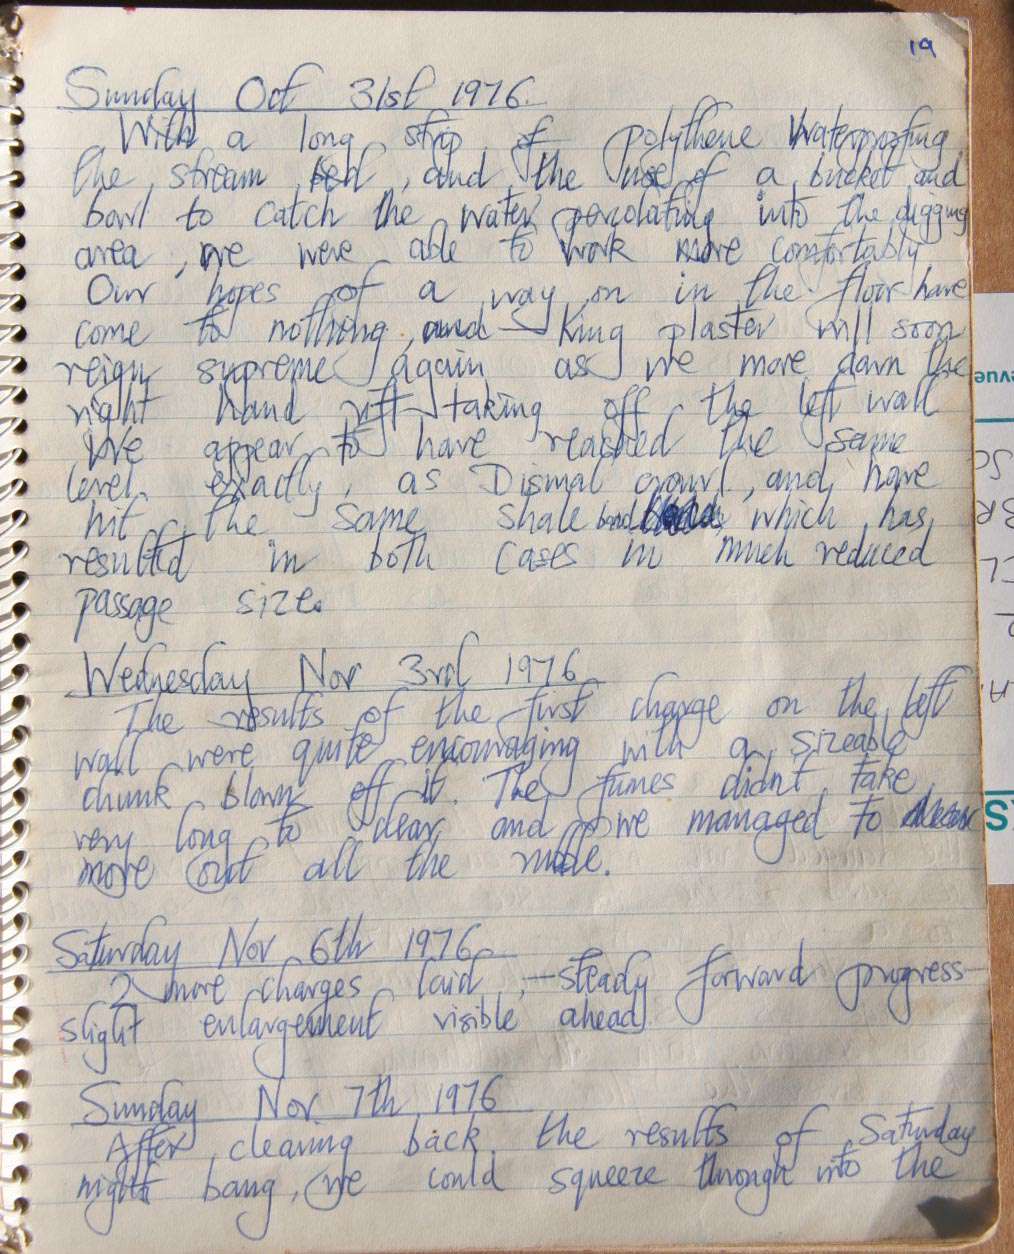 19
Sunday Oct 31st 1976.
With a long strip of polythene waterproofing
the stream bed, and the use of a bucket and
bowl to catch the water percolating into the digging
area, we were able to work more comfortably
Our hopes of a way on in the floor have
come to nothing and King plaster will soon
reign supreme again as we move down the
right hand rift taking off the left wall
We appear to have reached the same
level exactly, as Dismal crawl, and have
hit the same shale band which has
resulted in both cases in much reduced
passage size.
Wednesday Nov 3rd 1976
The results of the first charge on the left
wall were quite encouraging with a sizeable
chunk blown off it. The fumes didnt take
very long to clear and we managed to
move out all the
Saturday Nov 6th 1976
2 more charges laid, - steady forward progress -
slight enlargement visible ahead.
Sunday Nov 7th 1976
After clearing back the results of Saturday
night bang, we could squeeze through into the